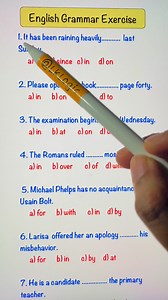 English Grammar Exercise
1. It has been raining heavily.......... last
a) in since c) in d) on
2. Please op page forty.
a) in b) on d) to
3. The examination begin Wednesday.
a) in b) at c) on d)
4. The Romans ruled ......... mos
a) in b) over c) of d)
5. Michael Phelps has no acquaintanc
Usain Bolt.
a) for b) with c) in d) by
6. Larisa offered her an apology .......... his
misbehavior.
a) for b) in c) by d) at
7. He is a candidate ............ the primary
teacher.